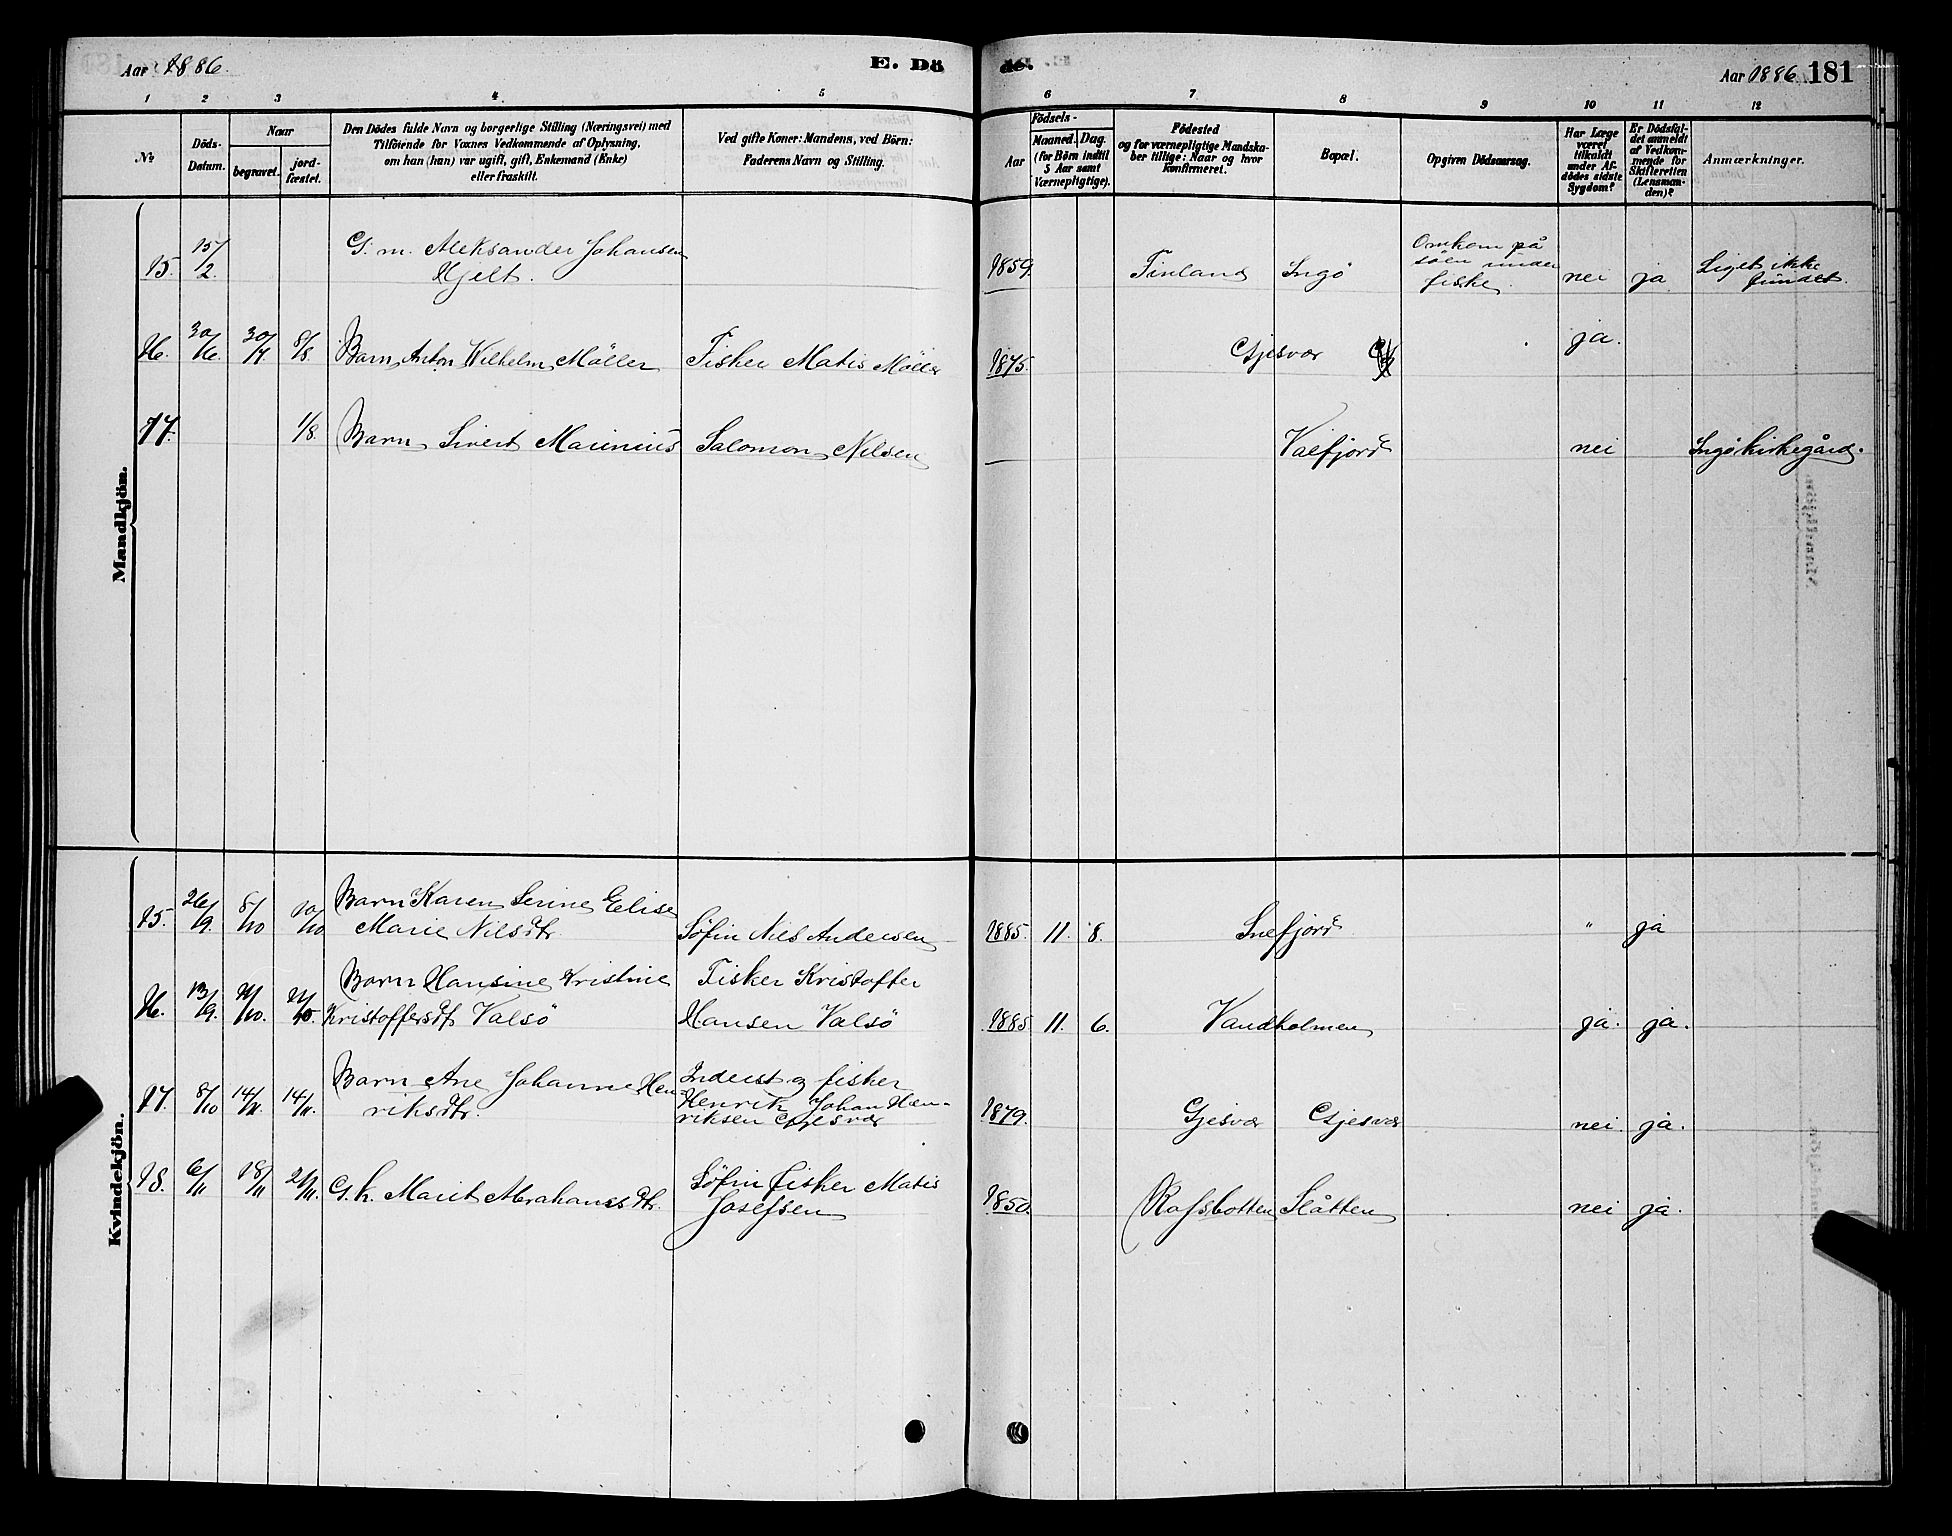 Aar 1886.
E. Dö
de.
Aar 1886
181
1 2 3 4. 5 6 7. 8 9 10 11 12
№
Döds-
Datum.
Naar
begravet.
jord-
fæstet.
Den Dödes fulde Navn og borgerlige Stilling (Næringsvei) med
Tilföiende for Voxnes Vedkommende af Oplysning,
om han (hun) var ugift, gift, Enkemand (Enke)
eller fraskilt.
Ved gifte Koner: Mandens, ved Börn:
Faderens Navn og Stilling.
Födsels-
Aar
Maaned. Dag.
(for Börn indtil
5 Aar samt
Værnepligtige).
Födested
og for værnepligtige Mandska-
ber tillige: Naar og hvor
konfirmeret.
Bopæl.
Opgiven Dödsaarsag.
Har Læge
været
tilkaldt
under Af-
dödes sidste
Sygdom?
Er Dödsfal-
det anmeldt
af Vedkom-
mende for
Skifteretten
(Lensman-
den)?
Anmærkninger.
Mandkjön.
15. 15/2. G. m. Aleksander Johansen
Hjelt.
1859. Finland Ingö
Omkom på
söen under
fiske.
nei ja
Liget ikke
fundet.
16. 30/6. 30/7. 8/8. Barn Anton Wilhelm Möller Fisker Matis Möller 1875. Gjesvær ja.
17. 1/8. Barn Sivert Marinius Salomon Nilsen — Valfjord nei Ingö kirkegård.
Kvindekjön.
15. 26/9. 8/10 10/10 Barn Karen Serine Elise
Marie Nilsdtr. Söfin Nils Andersen 1885. 11. 8. Snefjord " ja
16. 13/9. 21/10. 21/10. Barn Hansine Kristine
Kristoffersdtr Valsö
Fisker Kristoffer
Hansen Valsö 1885 11. 6. Vandholmen ja. ja.
17. 8/10 14/11. 14/11. Barn Ane Johanne Hen
riksdtr.
Inderst og fisker
Henrik Johan Hen-
riksen Gjesvær
1879. Gjesvær Gjesvær nei ja.
18. 6/11 18/11 21/11. G. k. Marit Abrahamsdtr. Söfin fisker Matis
Josefsen 1850. Rafsbotten Slåtten nei ja.